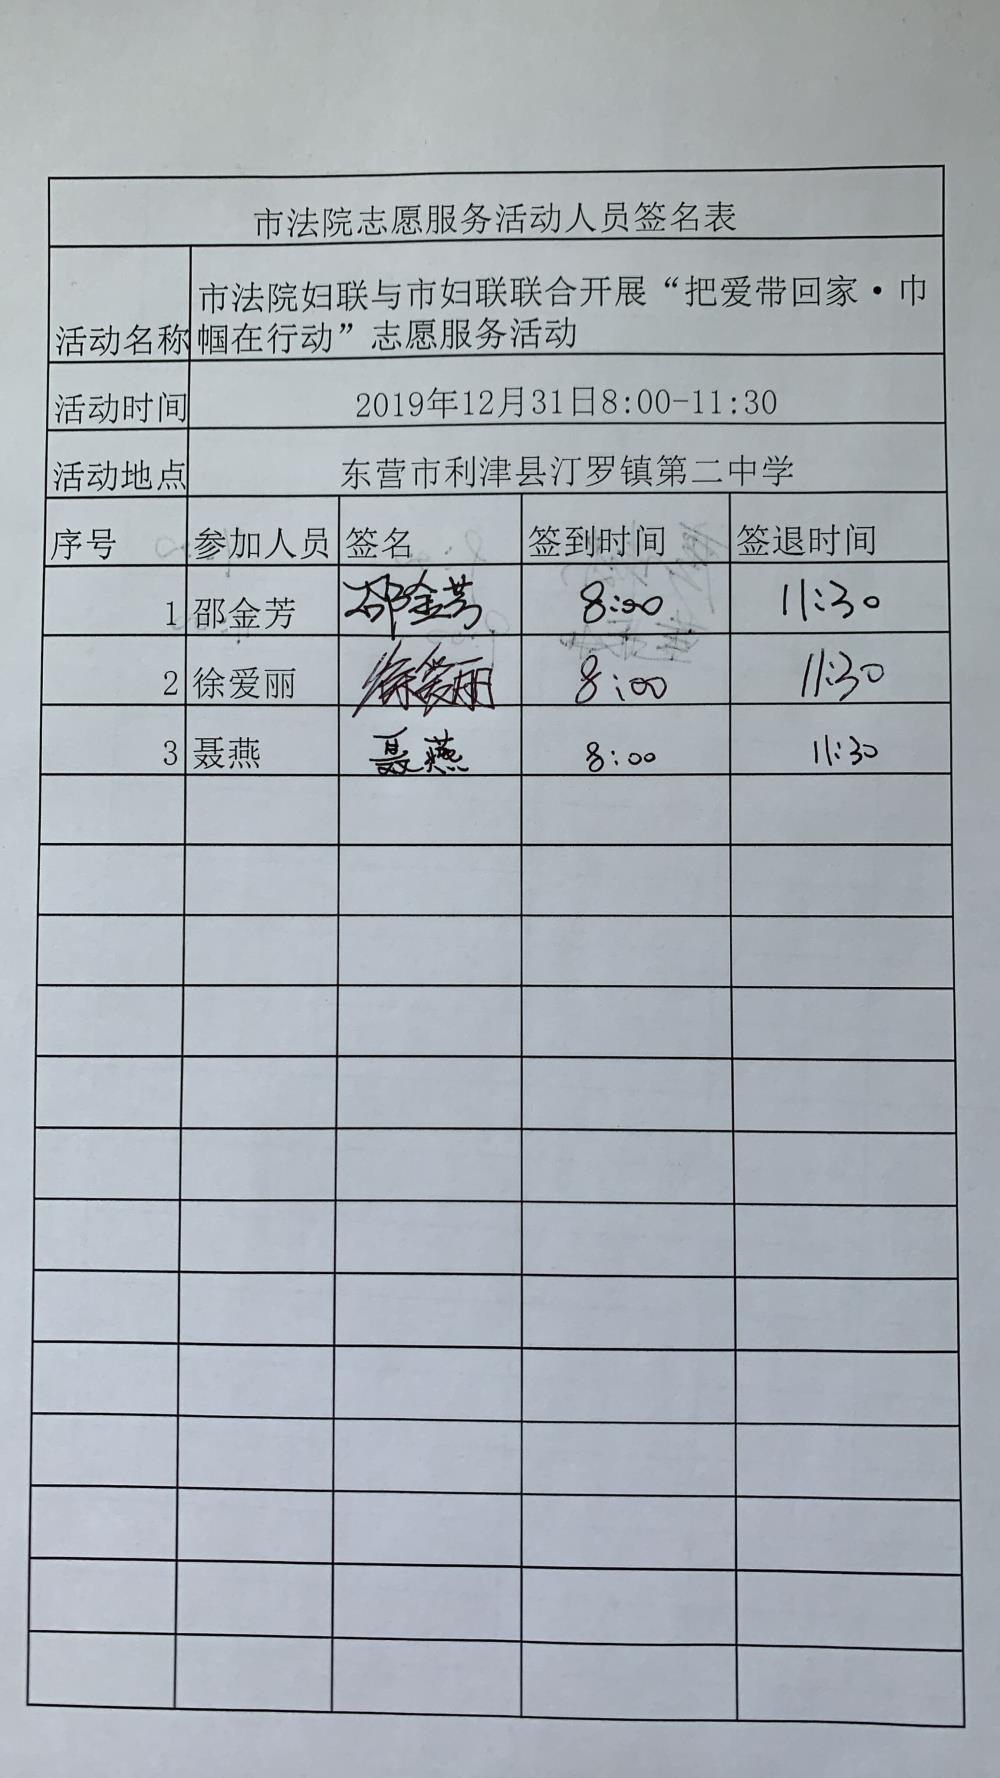 市法院志愿服务活动人员签名表
活动名称 市法院妇联与市妇联联合开展“把爱带回家·巾
帼在行动”志愿服务活动
活动时间 2019年12月31日8:00-11:30
活动地点 东营市利津县汀罗镇第二中学
序号 参加人员 签名 签到时间 签退时间
1 邵金芳 邵金芳 8:00 11:30
2 徐爱丽 徐爱丽 8:00 11:30
3 聂燕 聂燕 8:00 11:30